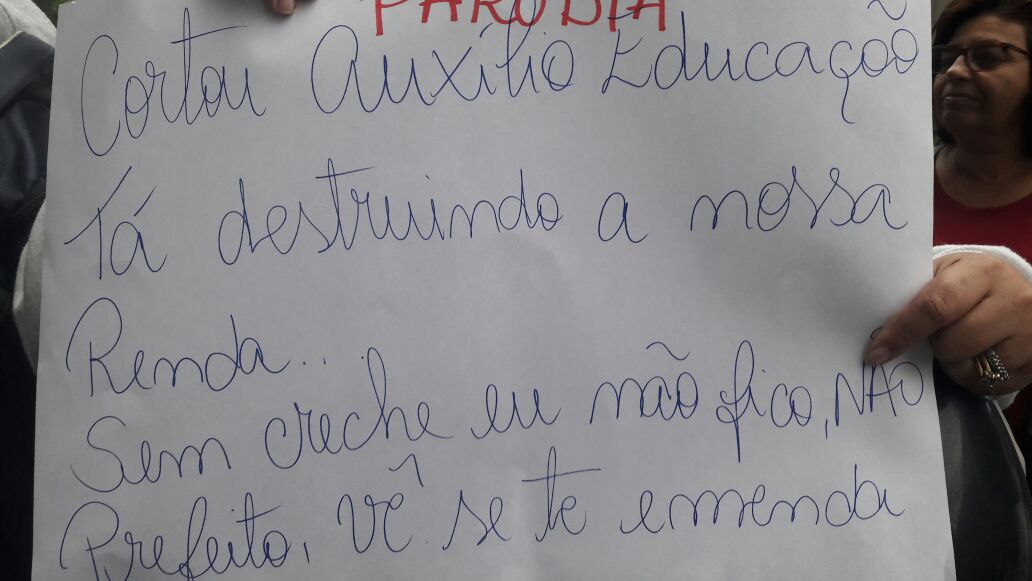 PARÓDIA
Cortou Auxílio Educação
Tá destruindo a nossa
Renda...
Sem creche eu não fico, NÃO
Prefeito, vê se te emenda